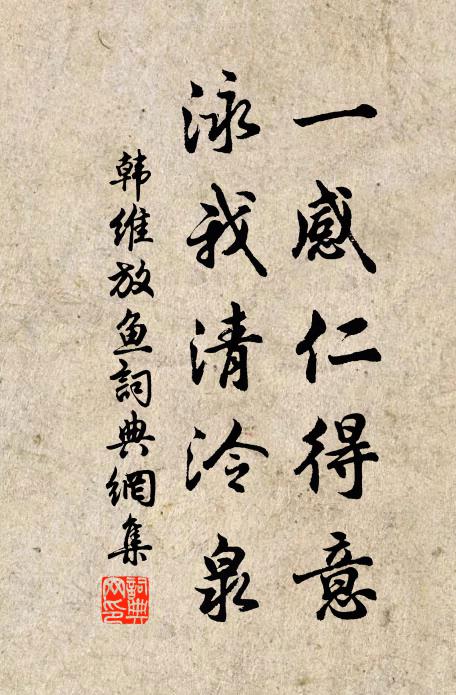 一感仁得意
泳我清泠泉
韩维放鱼詞典網集
詞典
网印